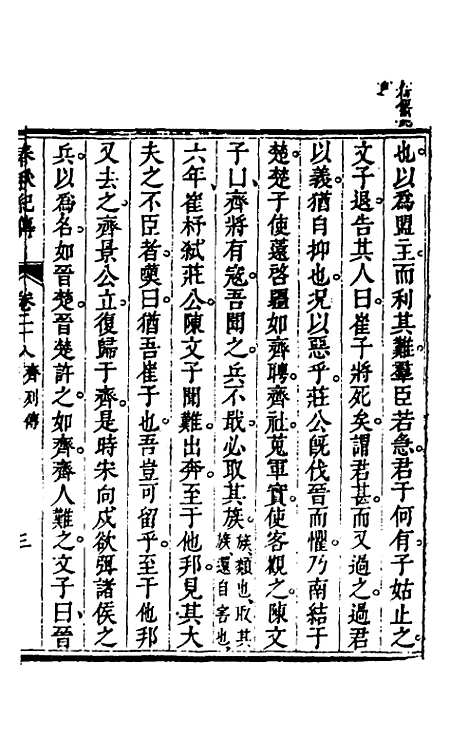 也以為盟主而利其難羣臣若急君于何有子姑止之
文子退告其人曰崔子將死矣謂君甚而又過之過君
以義猶自抑也况以惡乎莊公旣伐晉而懼乃南結于
楚楚子使薳啓疆如齊聘齊社蒐軍實使客觀之陳文
子曰齊將有寇吾聞之兵不戢必取其族族類也取其族還自害也
六年崔杼弑莊公陳文子聞難出奔至于他邦見其大
夫之不臣者嘆曰猶吾崔子也吾豈可留乎至于他邦
又去之齊景公立復歸于齊是時宋向戌欲弭諸侯之
兵以為名如晉楚晉楚許之如齊齊人難之文子曰晉
春秋紀傳 卷二十八 齊列傳 三